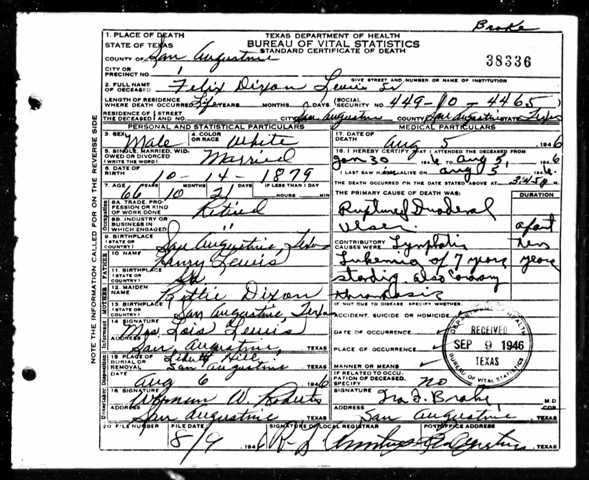 Brake
1. PLACE OF DEATH
STATE OF TEXAS
COUNTY OF San Augustine
TEXAS DEPARTMENT OF HEALTH
BUREAU OF VITAL STATISTICS
STANDARD CERTIFICATE OF DEATH
38336
CITY OR
PRECINCT NO. 1
GIVE STREET AND NUMBER OR NAME OF INSTITUTION
2. FULL NAME
OF DECEASED Felix Dixon Lewis Sr
LENGTH OF RESIDENCE
WHERE DEATH OCCURRED Life YEARS MONTHS DAYS (SOCIAL SECURITY NO. 449-10-4465)
RESIDENCE OF THE DECEASED STREET AND NO. CITY San Augustine COUNTY San Augustine STATE Texas
PERSONAL AND STATISTICAL PARTICULARS
MEDICAL PARTICULARS
3. SEX Male
4. COLOR OR RACE White
5. SINGLE, MARRIED, WIDOWED OR DIVORCED (WRITE THE WORD) Married
6. DATE OF BIRTH 10-14-1879
7. AGE 66 YEARS 10 MONTHS 21 DAYS IF LESS THAN 1 DAY
HOURS MIN
8A. TRADE PROFESSION OR KIND OF WORK DONE Retired
8B. INDUSTRY OR BUSINESS IN WHICH ENGAGED
9. BIRTHPLACE (STATE OR COUNTRY) San Augustine, Texas
10. NAME Henry Lewis
11. BIRTHPLACE (STATE OR COUNTRY)
12. MAIDEN NAME Dixon
13. BIRTHPLACE (STATE OR COUNTRY) San Augustine, Texas
14. SIGNATURE Mrs Lois Lewis
ADDRESS San Augustine, TEXAS
15. PLACE OF BURIAL OR REMOVAL Liberty Hill,
San Augustine TEXAS
DATE Aug 6 1946
16. SIGNATURE Wyman W. Roberts
ADDRESS San Augustine TEXAS
17. DATE OF DEATH Aug 5 1946
18. I HEREBY CERTIFY THAT I ATTENDED THE DECEASED FROM
Jan 30 1946 TO Aug 5, 1946
I LAST SAW HIM ALIVE ON Aug 5 1946
THE DEATH OCCURRED ON THE DATE STATED ABOVE AT 3:45 P M
THE PRIMARY CAUSE OF DEATH WAS:
DURATION
Ruptured Duodenal
Ulser.
CONTRIBUTORY CAUSES WERE: Lymphatic
Lukemia of 7 years
standing. also Coronary
thrombosis
years
IF NOT DUE TO DISEASE, SPECIFY WHETHER:
ACCIDENT, SUICIDE OR HOMICIDE
DATE OF OCCURRENCE
PLACE OF OCCURRENCE
MANNER OR MEANS
IF RELATED TO OCCUPATION OF DECEASED, SPECIFY no
SIGNATURE Ira F. Brake M.D.
ADDRESS San Augustine TEXAS
DEPARTMENT OF HEALTH
RECEIVED
SEP 9 1946
TEXAS
BUREAU OF VITAL STATISTICS
20. FILE NUMBER
FILE DATE 8/9 1946
SIGNATURE OF LOCAL REGISTRAR
POSTOFFICE ADDRESS
TEXAS
NOTE THE INFORMATION CALLED FOR ON THE REVERSE SIDE
Occupation
FATHER
MOTHER
Informant
Undertaker, Disposition